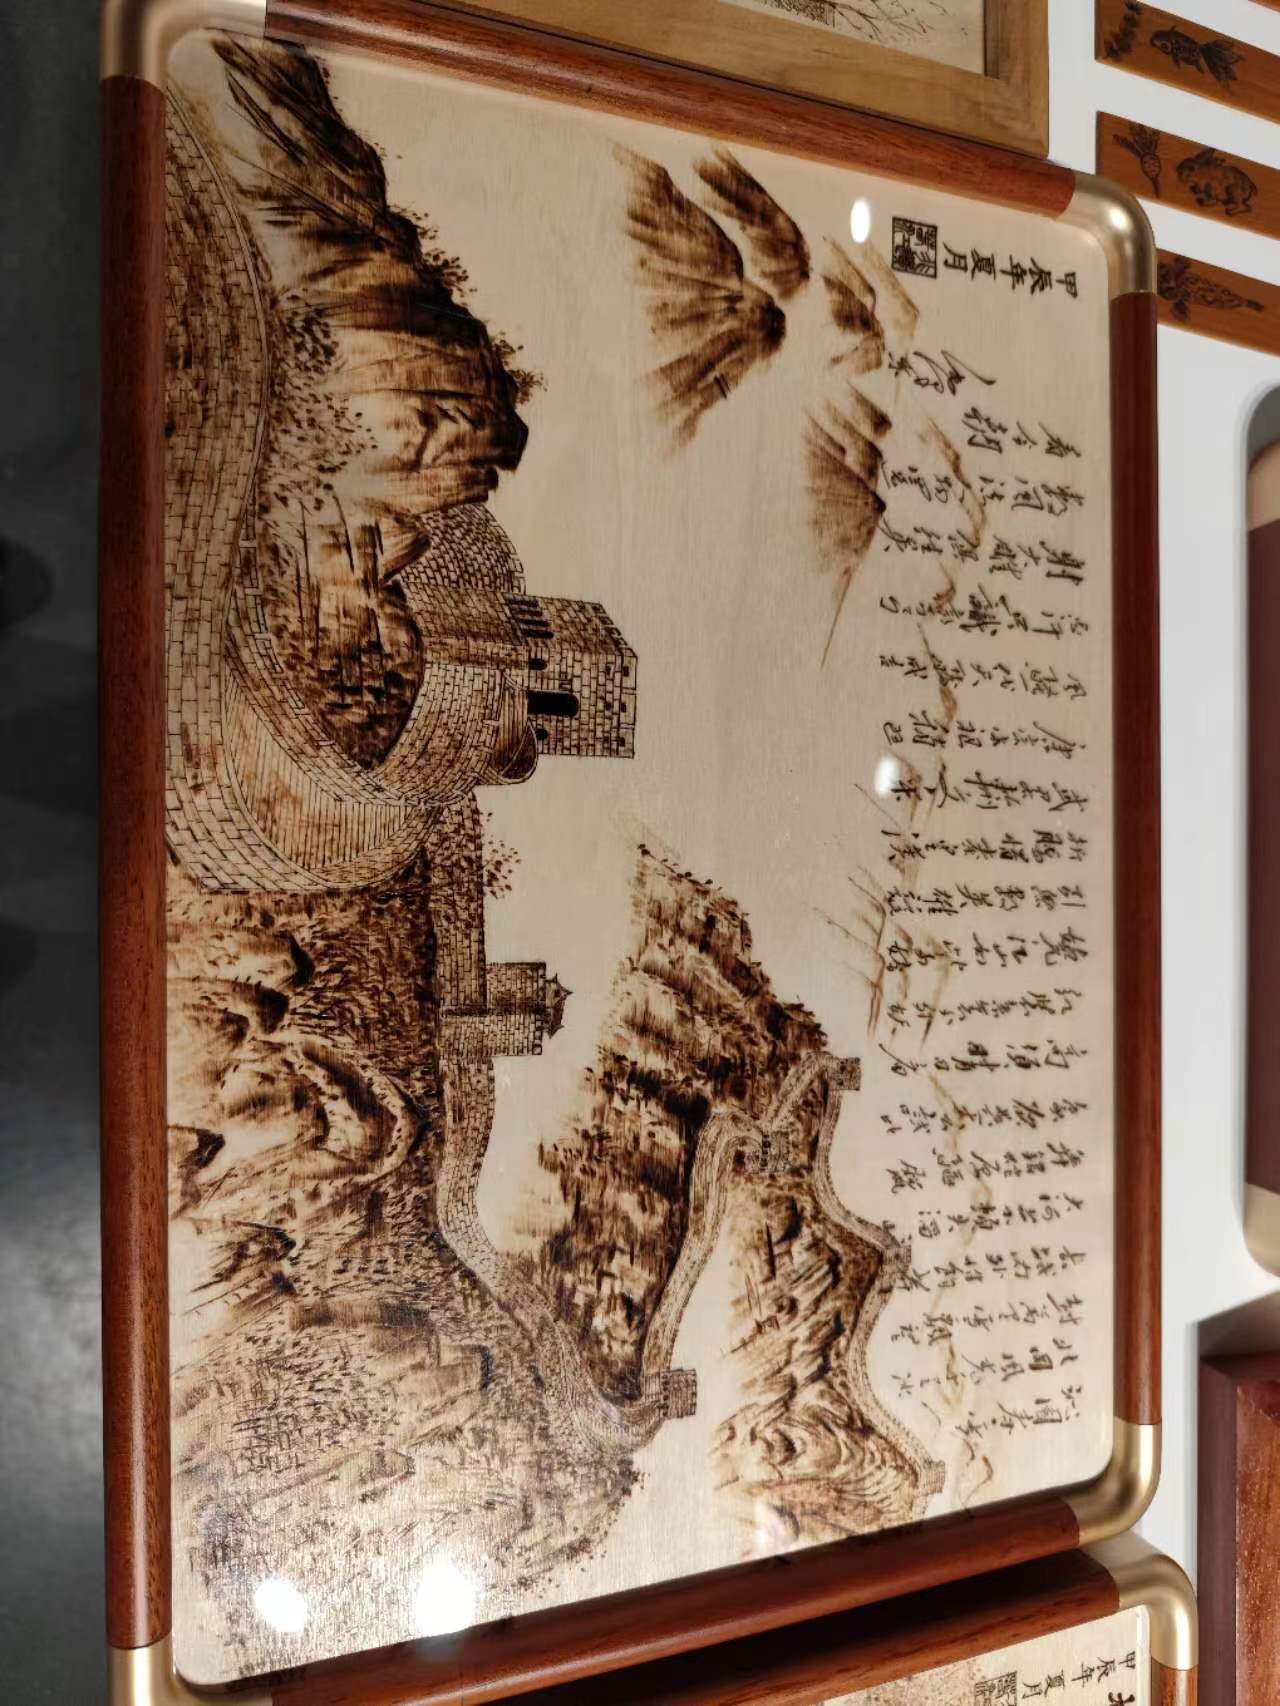 沁园春 雪
北国风光千里冰
封万里雪飘望
长城内外惟余莽
大河上下顿失滔
舞银蛇原驰蜡
象欲与天公试比
高须晴日看
红装素裹分外妖
娆江山如此多娇
引无数英雄竞
折腰惜秦皇汉
武略输文采
唐宗宋祖稍逊
风骚一代天骄成吉
思汗只识弯弓
射大雕俱往矣
数风流人物还
看今朝
甲辰年夏月
甲辰年夏月